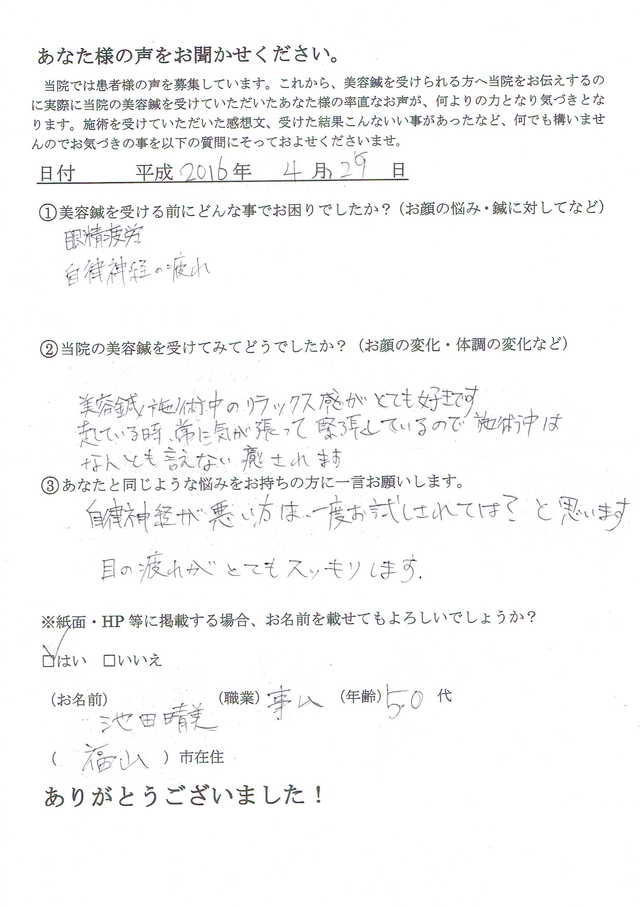 あなた様の声をお聞かせください。
当院では患者様の声を募集しています。これから、美容鍼を受けられる方へ当院をお伝えするの
に実際に当院の美容鍼を受けていただいたあなた様の率直なお声が、何よりの力となり気づきとな
ります。施術を受けていただいた感想文、受けた結果こんないい事があったなど、何でも構いませ
んのでお気づきの事を以下の質問にそっておよせくださいませ。
日付 平成 2016年 4月 29日
①美容鍼を受ける前にどんな事でお困りでしたか？（お顔の悩み・鍼に対してなど）
眼精疲労
自律神経の疲れ
②当院の美容鍼を受けてみてどうでしたか？（お顔の変化・体調の変化など）
美容鍼施術中のリラックス感がとても好きです
起きている時、常に気が張って緊張しているので施術中は
なんとも言えない癒されます
③あなたと同じような悩みをお持ちの方に一言お願いします。
自律神経が悪い方は、一度お試しされては？と思います
目の疲れがとてもスッキリします。
※紙面・HP 等に掲載する場合、お名前を載せてもよろしいでしょうか？
☑はい □いいえ
（お名前） 池田晴美 （職業） 事務 （年齢） 50 代
（ 福山 ）市在住
ありがとうございました！